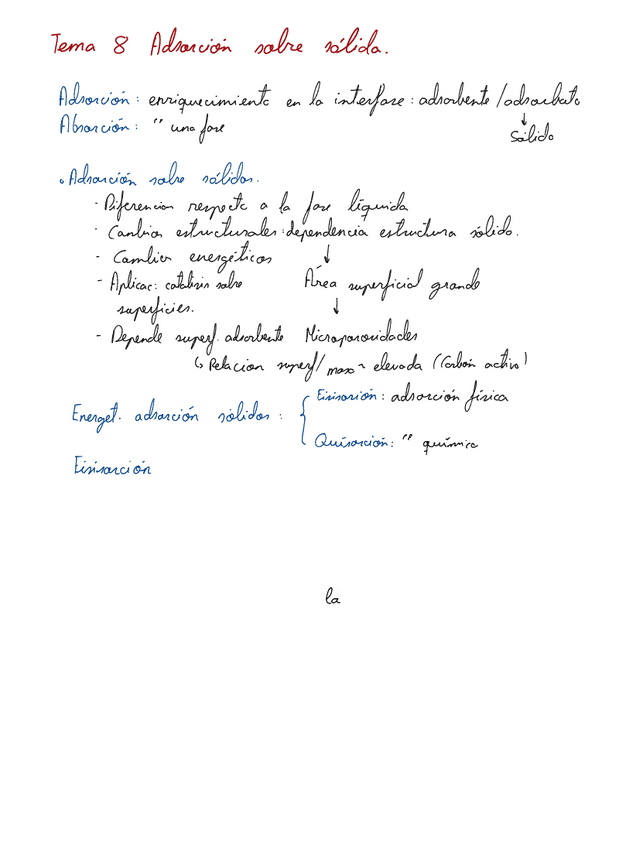 Tema 8 Adsorción sobre sólida.
Adsorción: enriquecimiento en la interfase: adsorbente/adsorbato
↓
Absorción: " una fase
sólido
• Adsorción sobre sólidos.
- Diferencias respecto a la fase líquida
- Cambios estructurales: dependencia estructura sólido.
- Cambios energéticos ↓
- Aplicac: catálisis sobre Área superficial grande
superficies. ↓
- Depende superf. adsorbente Microporosidades
↳ Relacion superf/masa ~ elevada (Carbón activo)
Energet. adsorción sólidos: { Fisisorción: adsorción física
Quisorción: " química
Fisisorción
la